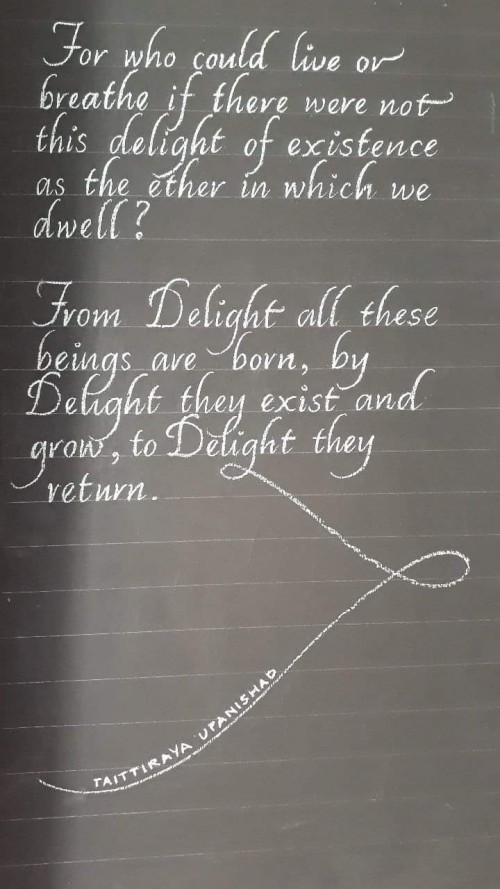 For who could live or
breathe if there were not
this delight of existence
as the ether in which we
dwell?
From Delight all these
beings are born, by
Delight they exist and
grow, to Delight they
return.
TAITTIRAYA UPANISHAD